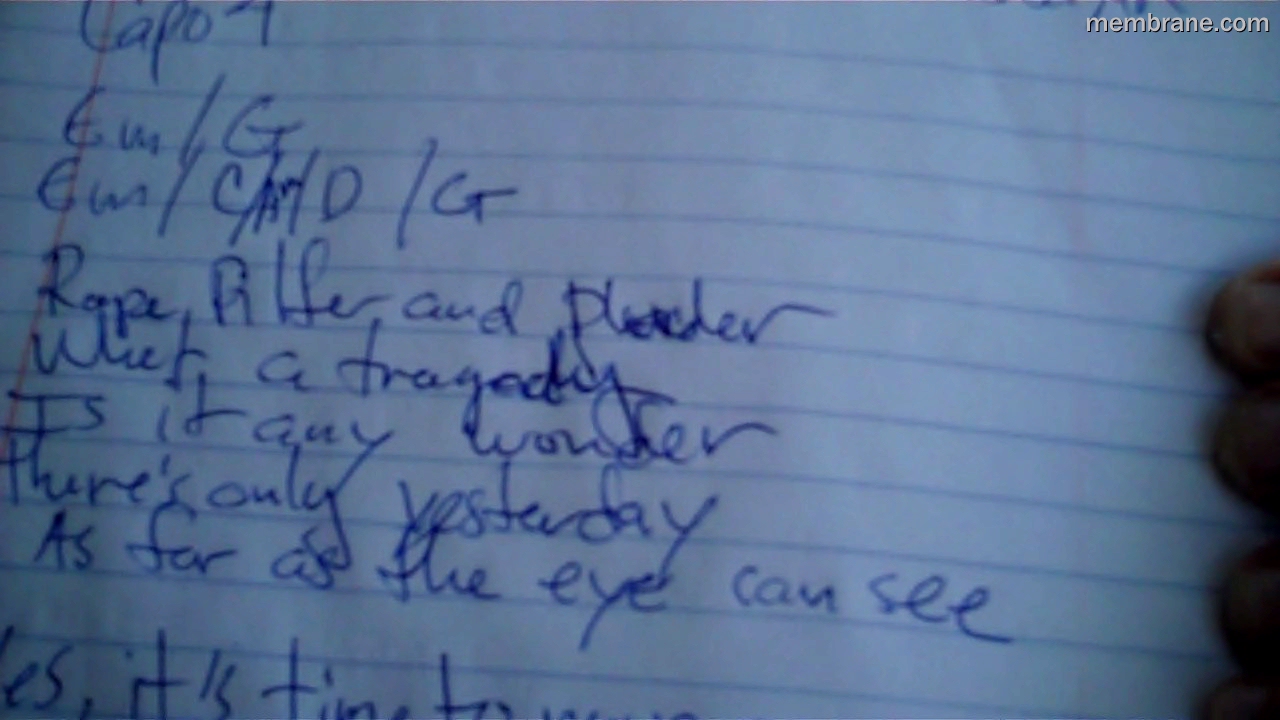 membrane.com
Capo 4
Em/G
Em/C/Am/D/G
Rape, Pilfer, and plunder
What, a tragedy
Is it any wonder
there's only yesterday
As far as the eye can see
es, it's time to